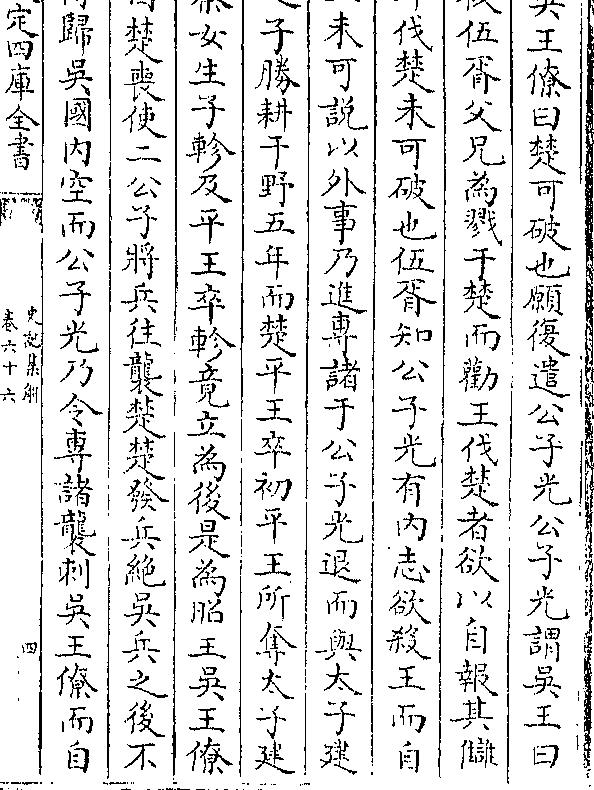 吳王僚曰楚可破也願復遣公子光公子光謂吳王曰
彼伍胥父兄為戮于楚而勸王伐楚者欲以自報其讎
伐楚未可破也伍胥知公子光有内志欲殺王而自
未可說以外事乃進專諸于公子光退而與太子建
之子勝耕于野五年而楚平王卒初平王所奪太子建
秦女生子軫及平王卒軫竟立為後是為昭王吳王僚
因楚喪使二公子將兵往襲楚楚發兵絕吳兵之後不
得歸吳國内空而公子光乃令專諸襲刺吳王僚而自
定四庫全書
史記集解
卷六十六
四